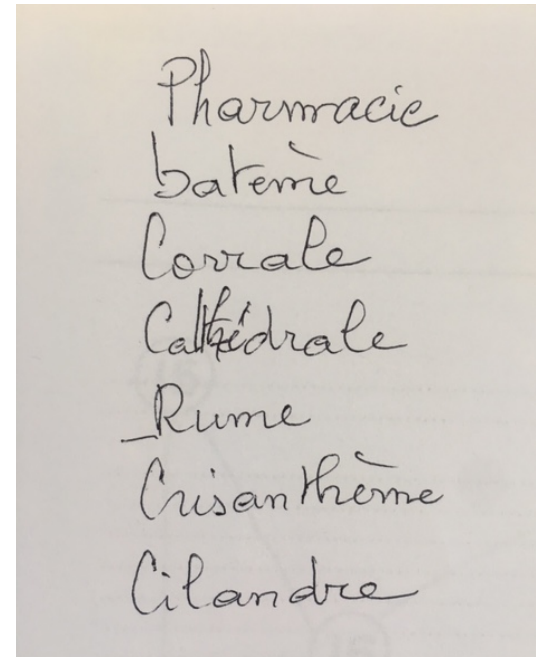 Pharmacie
batème
Corrale
Cathédrale
Rume
Crisanthème
Cilandre